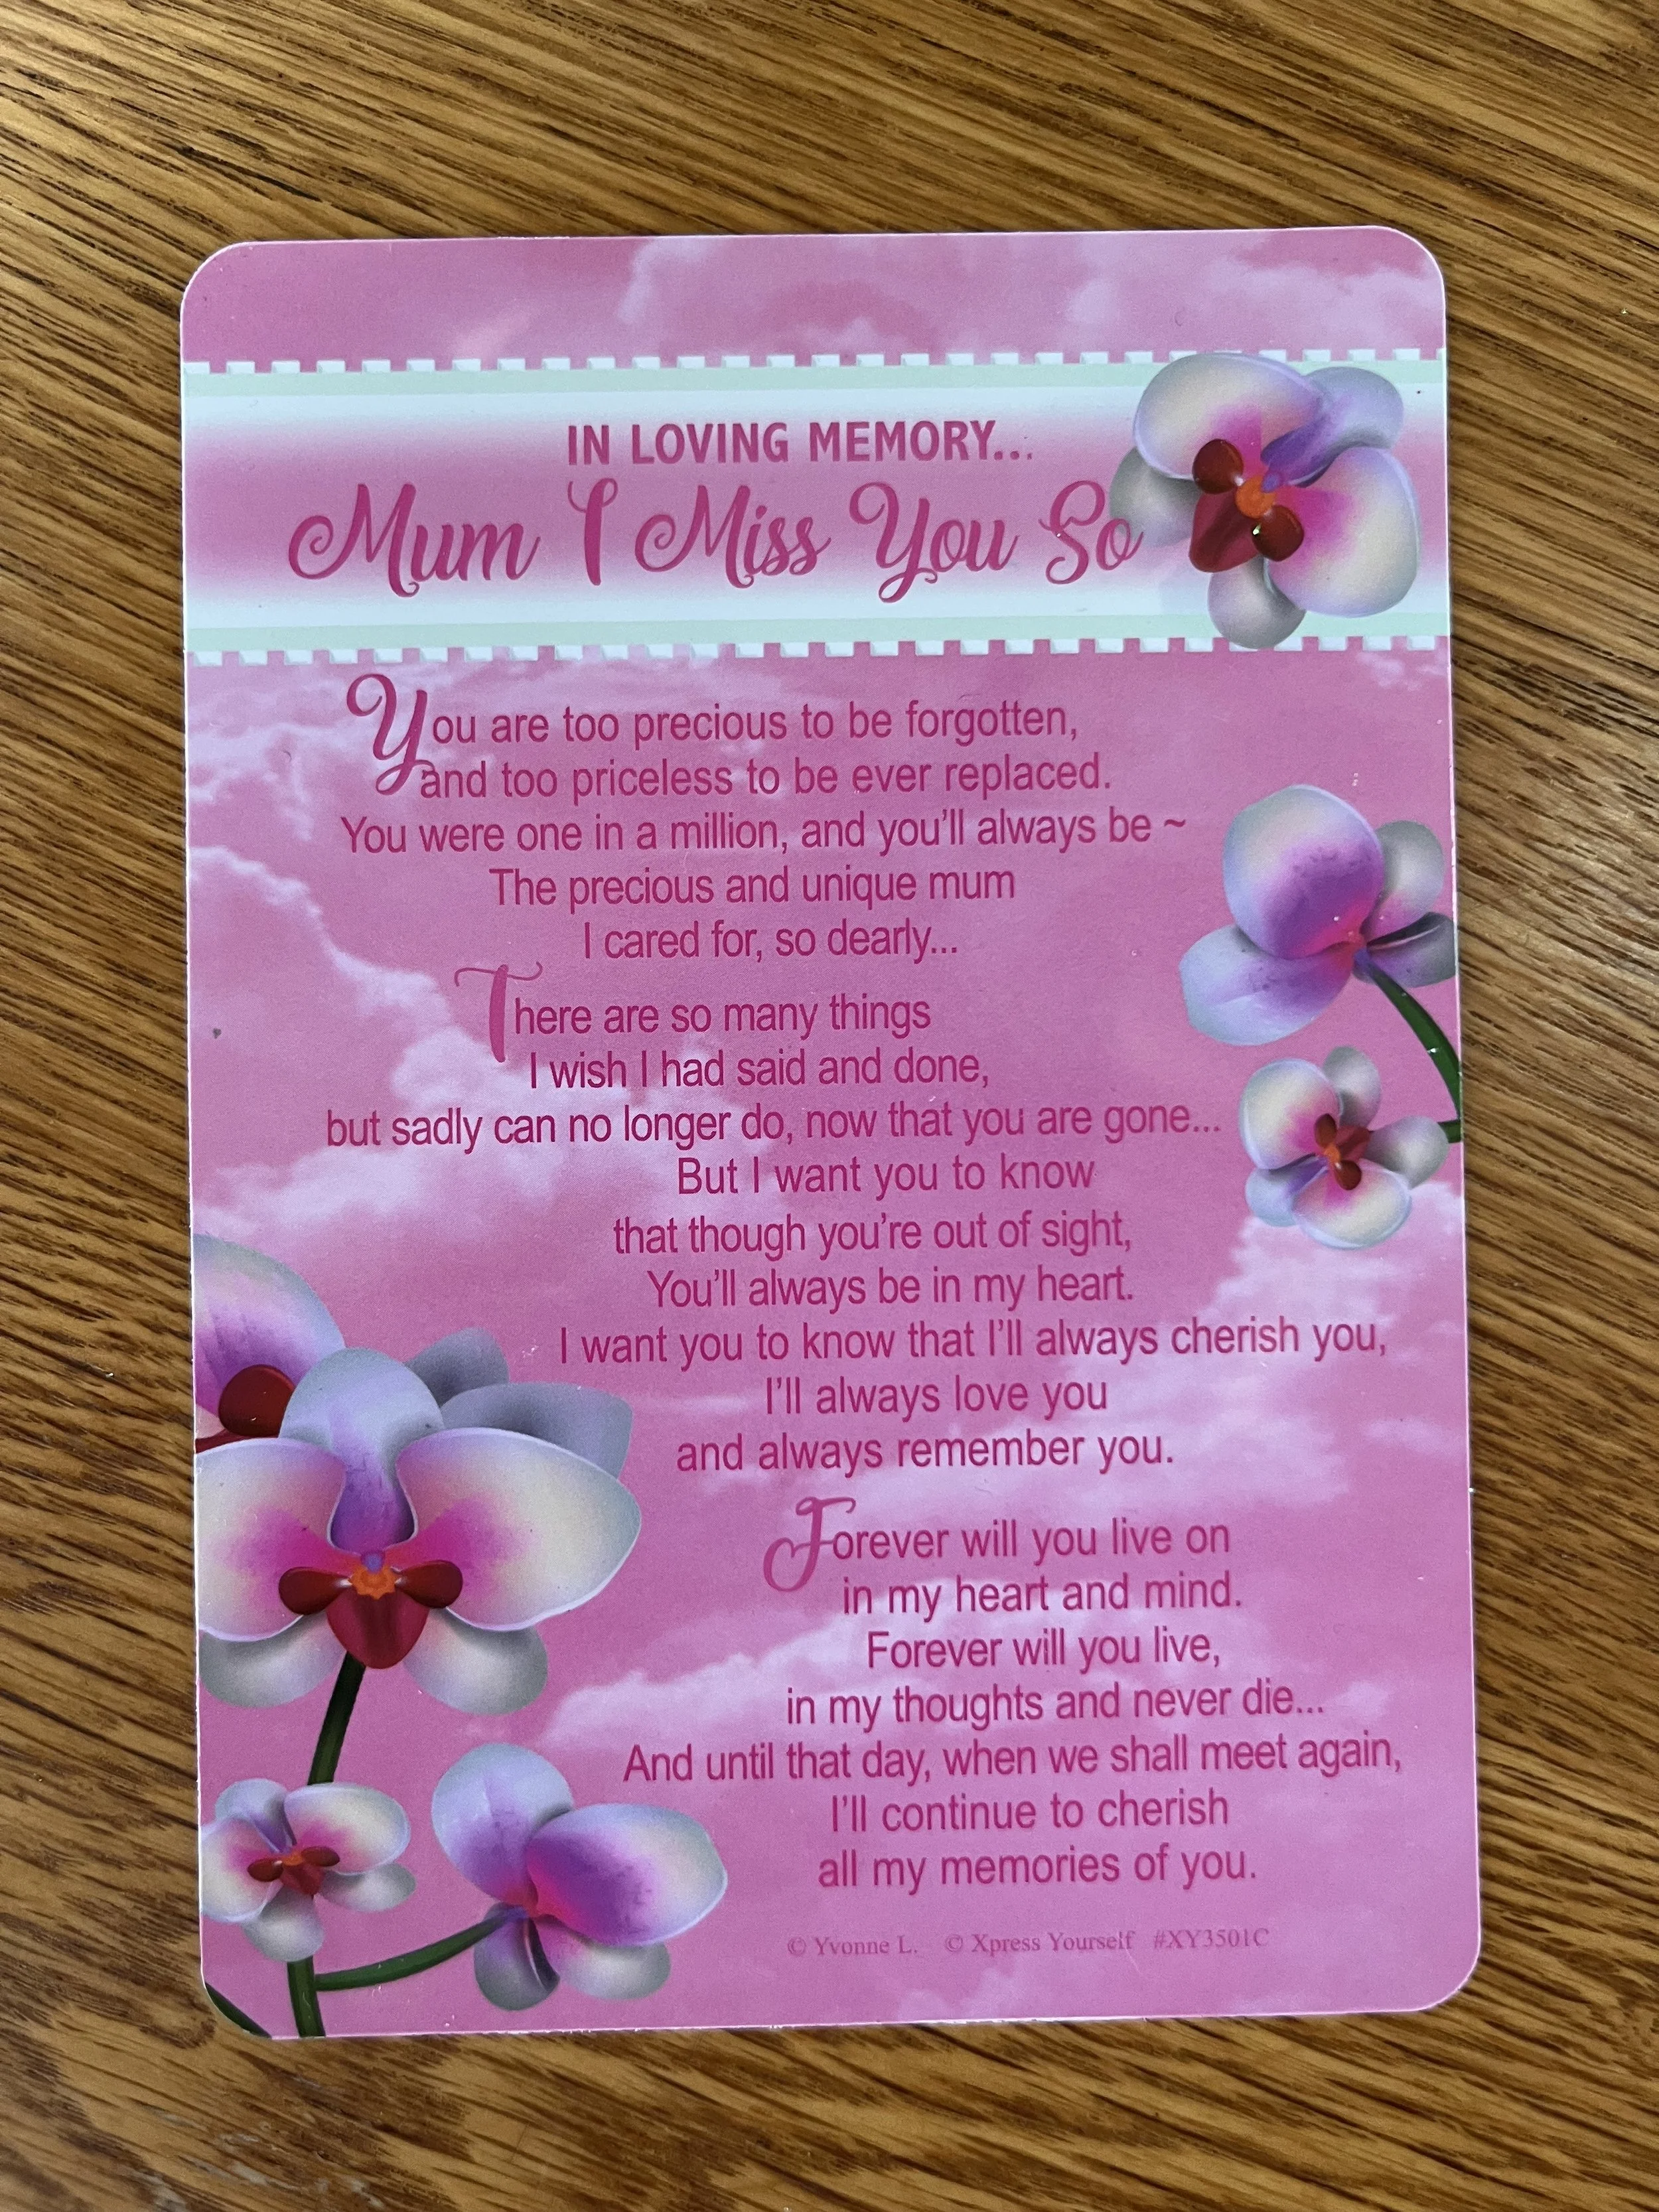 IN LOVING MEMORY...
Mum I Miss You So
You are too precious to be forgotten,
and too priceless to be ever replaced.
You were one in a million, and you'll always be ~
The precious and unique mum
I cared for, so dearly...
There are so many things
I wish I had said and done,
but sadly can no longer do, now that you are gone...
But I want you to know
that though you're out of sight,
You'll always be in my heart.
I want you to know that I'll always cherish you,
I'll always love you
and always remember you.
Forever will you live on
in my heart and mind.
Forever will you live,
in my thoughts and never die...
And until that day, when we shall meet again,
I'll continue to cherish
all my memories of you.
© Yvonne L. © Xpress Yourself #XY3501C